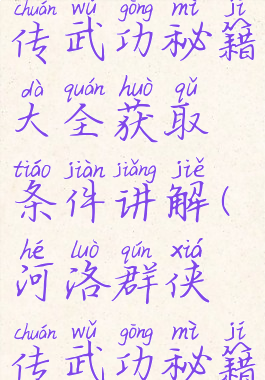 chuán wǔ gōng mì jí
传 武 功 秘 籍
dà quán huò qǔ
大 全 获 取
tiáo jiàn jiǎng jiě
条 件 讲 解 (
hé luò qún xiá
河 洛 群 侠
chuán wǔ gōng mì jí
传 武 功 秘 籍